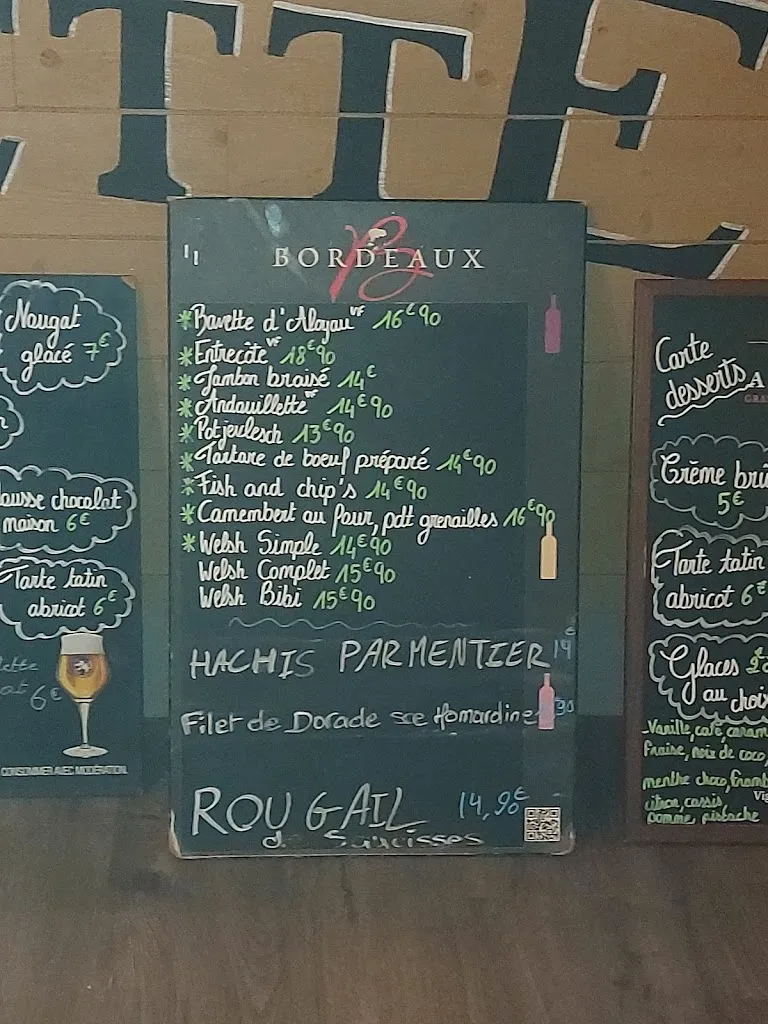 TTE
Nougat
glacé 7€
mousse chocolat
maison 6€
Tarte tatin
abricot 6€
6€
CONSOMMER AVEC MODERATION.
BORDEAUX
*Bavette d'Aloyau VF 16€90
*Entrecôte VF 18€90
*Jambon braisé 14€
*Andouillette VF 14€90
*Potjevlesch 13€90
*Tartare de boeuf préparé 14€90
*Fish and chip's 14€90
*Camembert au four, pdt grenailles 16€90
*Welsh Simple 14€90
Welsh Complet 15€90
Welsh Bibi 15€90
HACHIS PARMENTIER 14€
Filet de Dorade sce Homardine
ROUGAIL 14,90€
de Saucisses
Carte
desserts
Crème
5€
Tarte tatin
abricot 6€
Glaces
au choix
Vanille, café, caram
Fraise, noix de coco,
menthe choco,
citron, cassis,
pomme, pistache